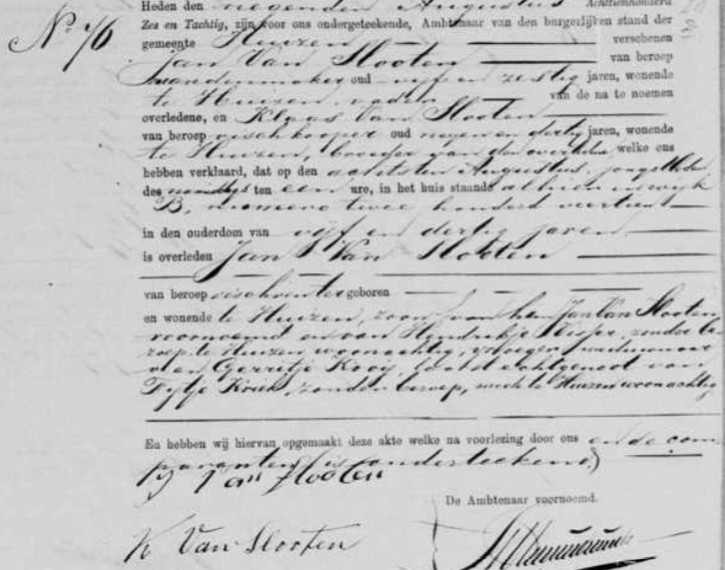 Heden den negenden Augustus Achttienhonderd
No 76 Zes en Tachtig, zijn voor ons ondergeteekende, Ambtenaar van den burgerlijken stand der
gemeente Huizen verschenen
Jan Van Slooten van beroep
mandenmaker oud vijf en zestig jaren, wonende
te Huizen, vader van de na te noemen
overledene, en Klaas Van Slooten
van beroep vischkooper oud negen en dertig jaren, wonende
te Huizen, broeder van den overledene welke ons
hebben verklaard, dat op den achtsten Augustus jongstleden
des namiddags ten een ure, in het huis staande alhier in wijk
B, nummero twee honderd veertien
in den ouderdom van vijf en dertig jaren
is overleden Jan Van Slooten
van beroep vischventer geboren
en wonende te Huizen, zoon van Jan Van Slooten
voornoemd en van Hendrikje zonder be-
roep te Huizen woonachtig, vroeger weduwnaar
van Gerritje Kooy, laatst echtgenoot van
Fytje Kruis, zonder beroep, mede te Huizen woonachtig
En hebben wij hiervan opgemaakt deze akte welke na voorlezing door ons en de com-
paranten is onderteekend
J Van Slooten
De Ambtenaar voornoemd.
K Van Slooten